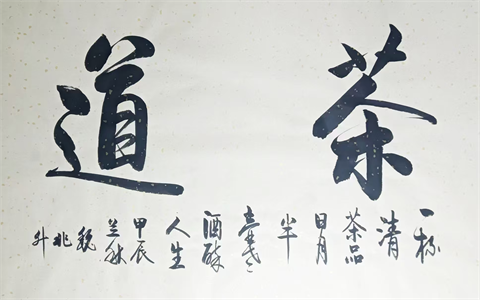 茶道
一杯
清
茶品
日月
半
壶老
酒醉
人生
甲辰
兰秋
兆
升